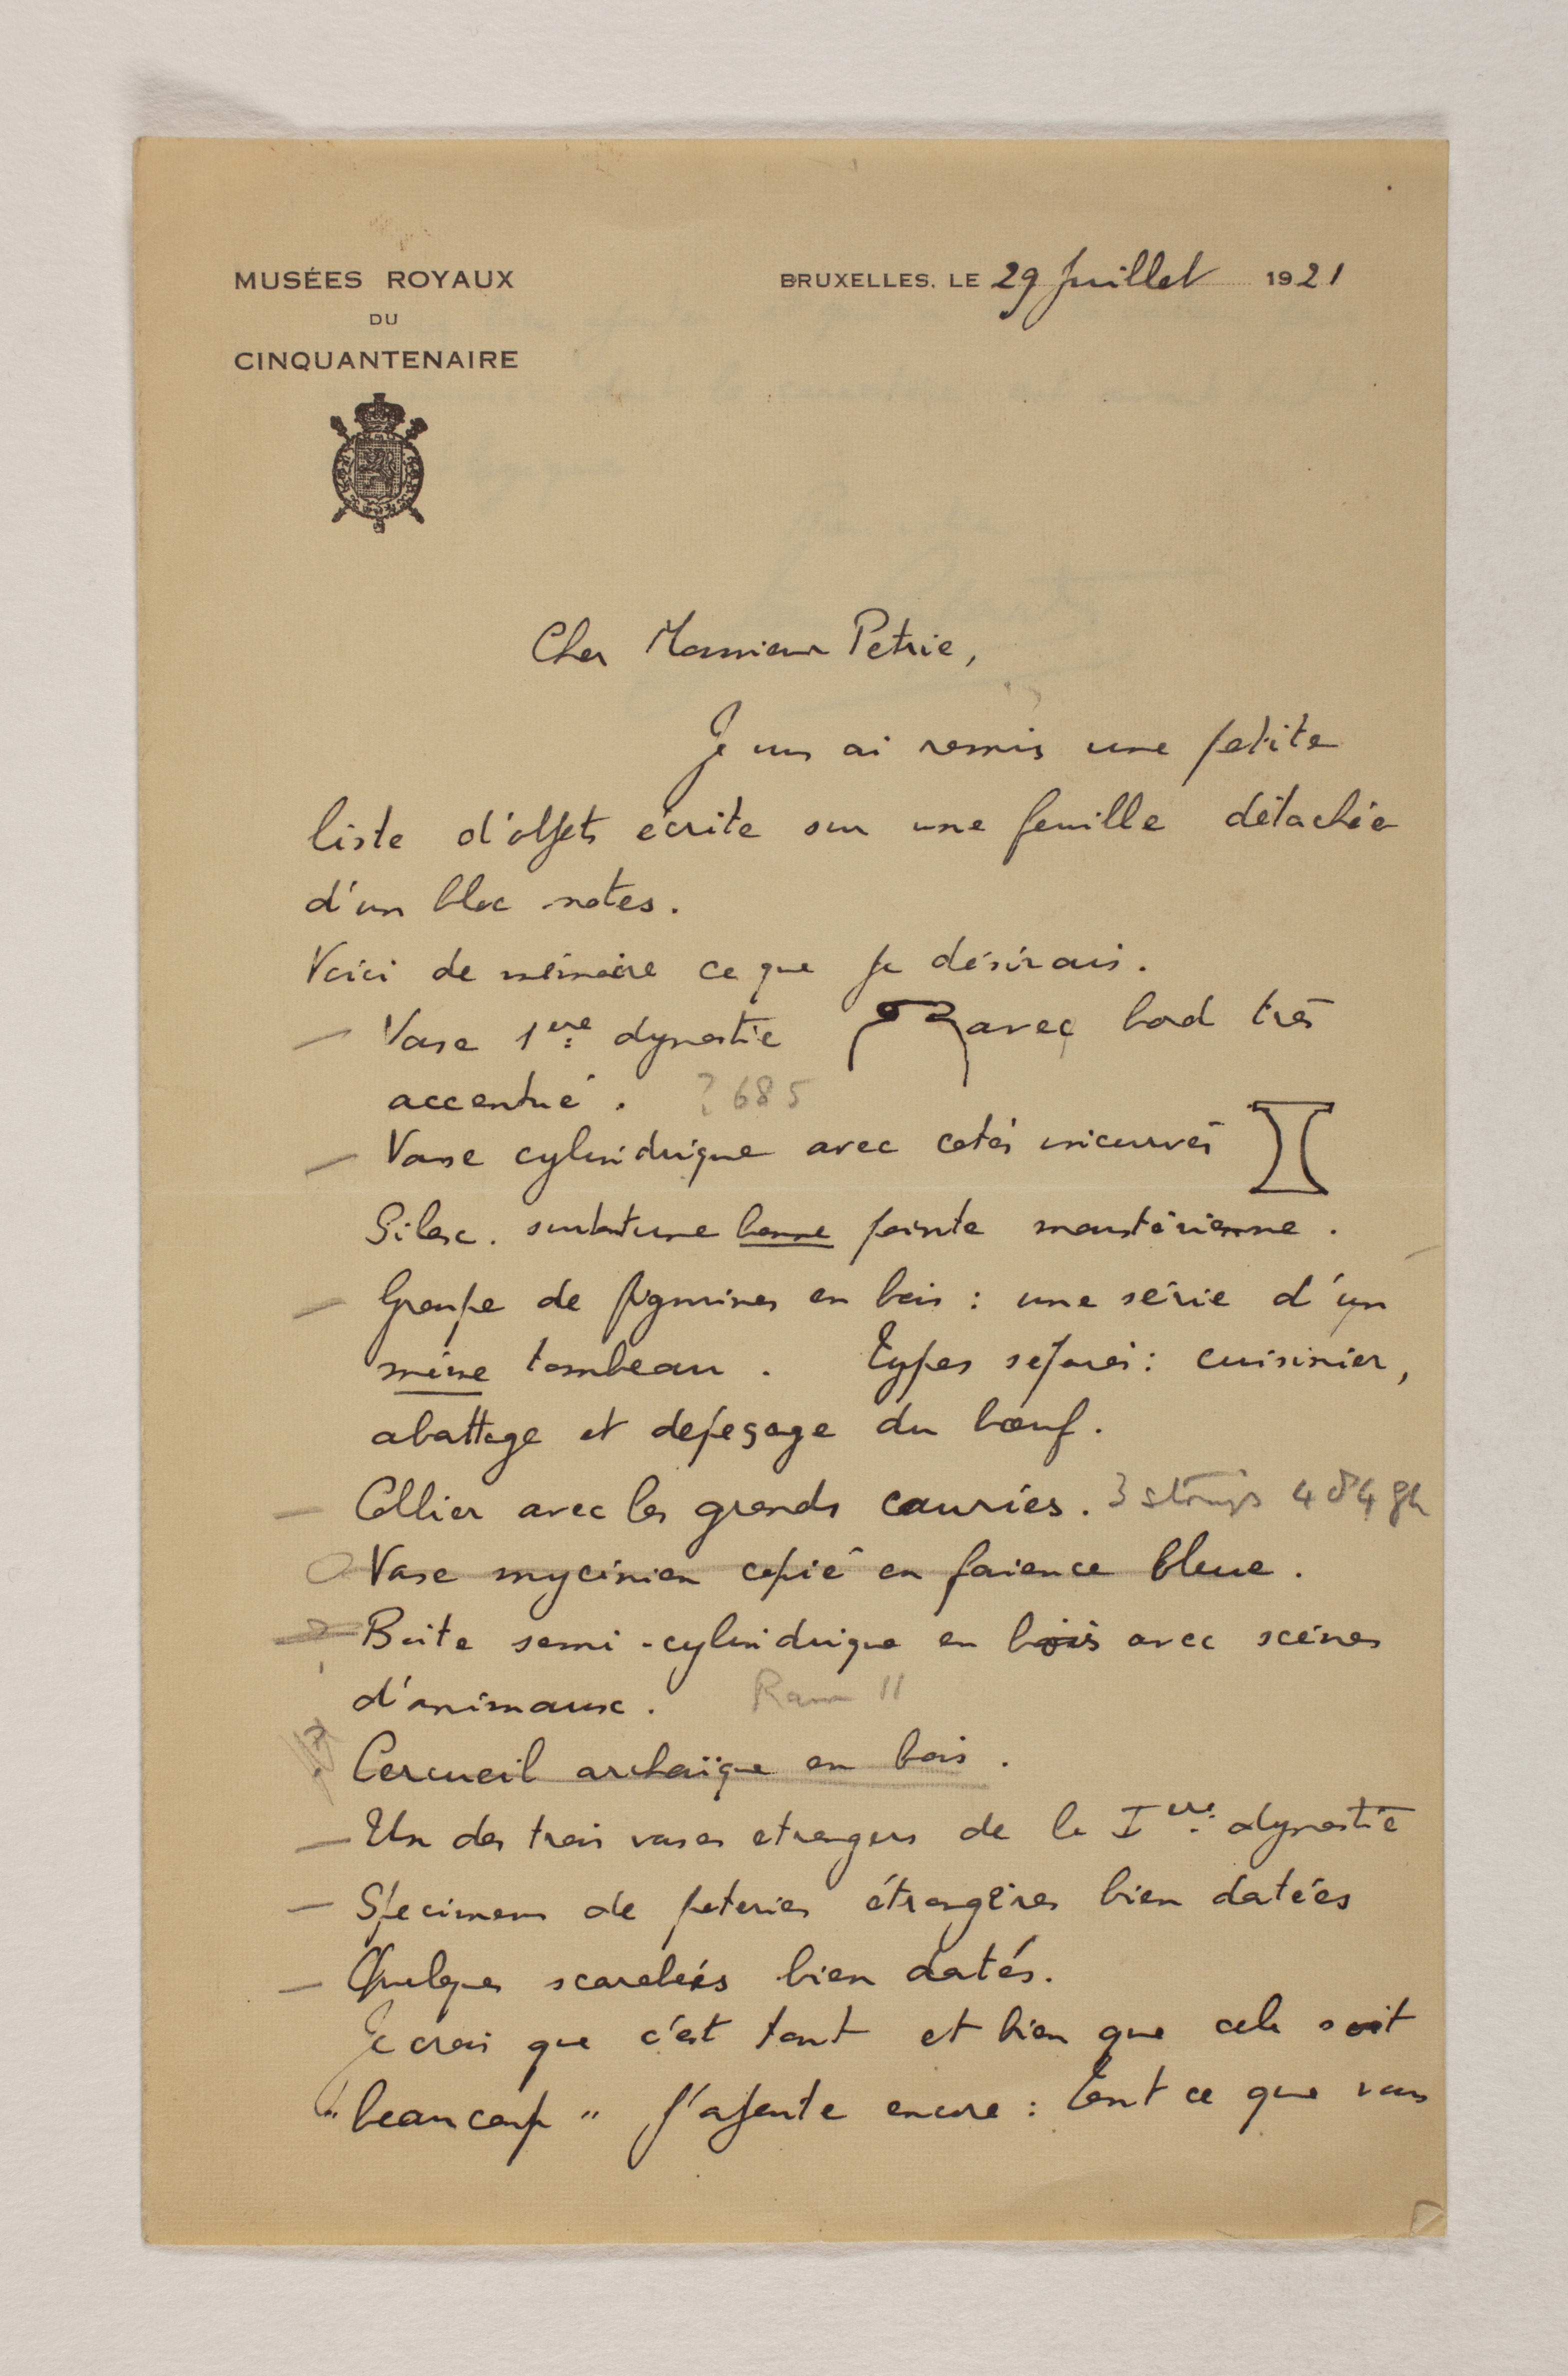 MUSÉES ROYAUX
DU
CINQUANTENAIRE
BRUXELLES, LE 29 Juillet 1921
Cher Monsieur Petrie,
Je vous ai remis une petite
liste d'objets écrite sur une feuille détachée
d'un bloc-notes.
Voici de mémoire ce que je désirais.
— Vase 1ère dynastie avec bord très
accentué. ? 685
— Vase cylindrique avec cotés incurvés
Silex. surtout une bonne pointe moustérienne.
— Groupe de figurines en bois : une série d'un
même tombeau. Types séparés : cuisinier,
abattage et depeçage du bœuf.
— Collier avec les grands cauries. 3 strings 484 gh
O Vase mycénien copié en faience bleue.
? Boite semi-cylindrique en bois avec scènes
d'animaux. Ram II
Cercueil archaïque en bois.
— Un des trois vases etrangers de la Ière dynastie
— Specimens de poteries étrangères bien datées
— Quelques scarabées bien datés.
Je crois que c'est tout et bien que cela soit
"beaucoup" j'ajoute encore : tout ce que vous